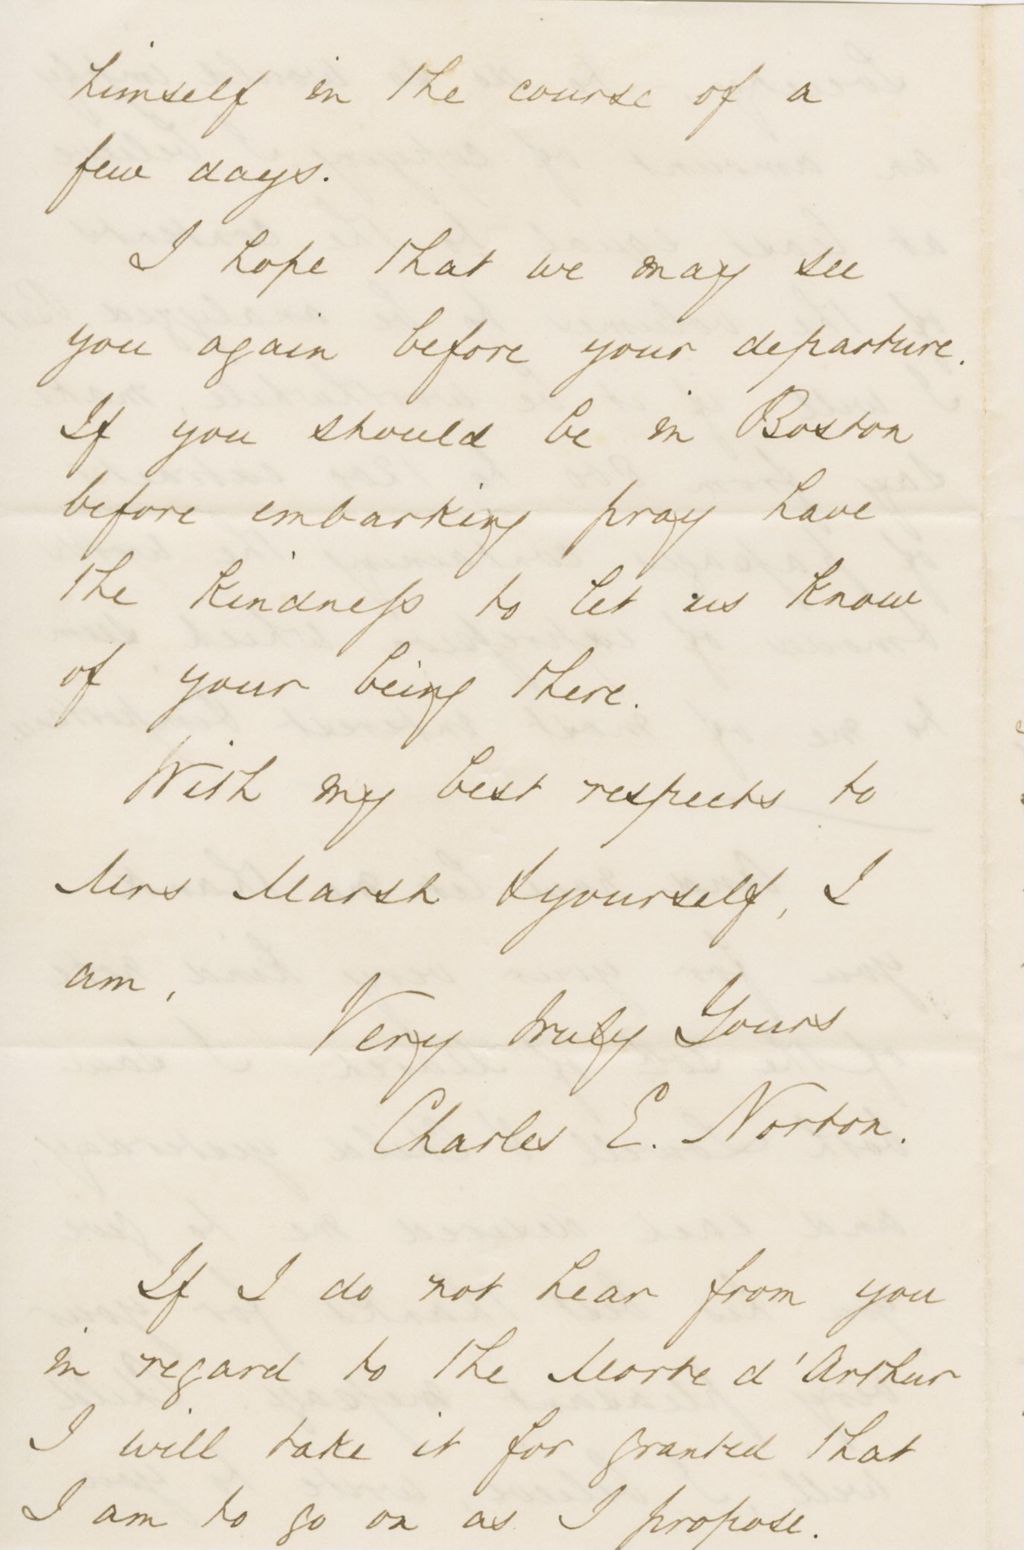 himself in the course of a
few days.
I hope that we may see
you again before your departure.
If you should be in Boston
before embarking pray have
the kindness to let us know
of your being there.
With my best respects to
Mrs Marsh & yourself, I
am,
Very truly Yours
Charles E. Norton.
If I do not hear from you
in regard to the Morte d'Arthur
I will take it for granted that
I am to go on as I propose.